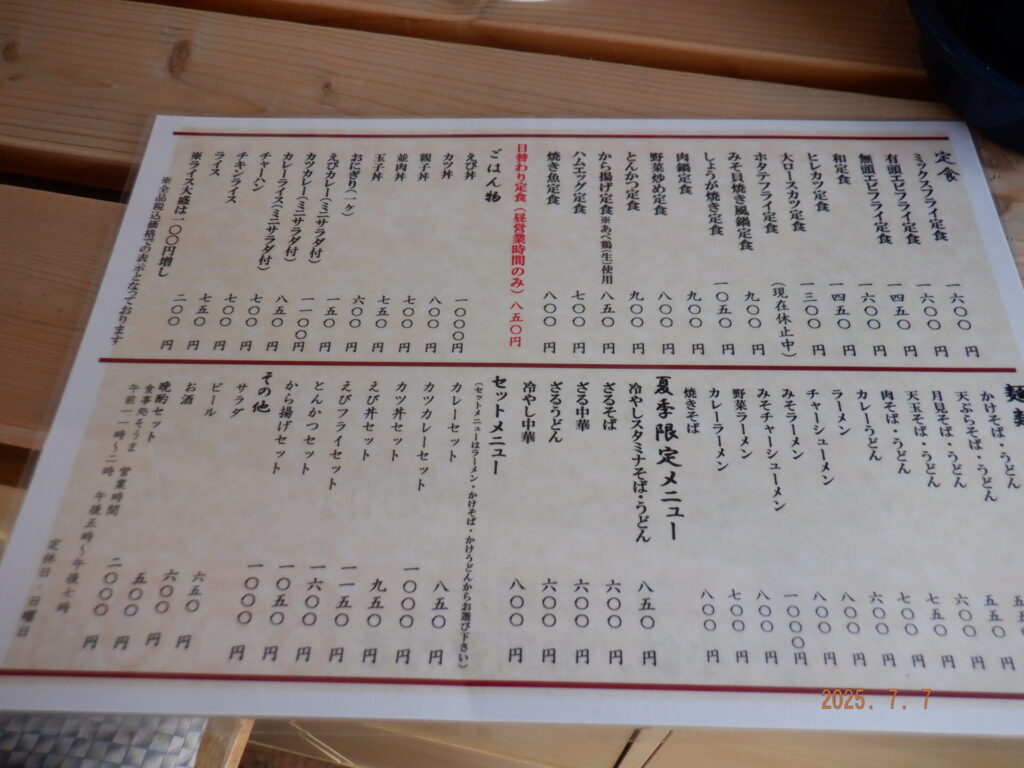 定食
ミックスフライ定食 一六〇〇円
有頭エビフライ定食 一六〇〇円
無頭エビフライ定食 一四五〇円
和定食 一六〇〇円
ヒレカツ定食 一四五〇円
大ロースカツ定食 一三〇〇円
ホタテフライ定食 (現在休止中)
みそ貝焼き風鍋定食 九〇〇円
しょうが焼き定食 一〇五〇円
肉鍋定食 九〇〇円
野菜炒め定食 八〇〇円
とんかつ定食 九〇〇円
から揚げ定食※あべ鶏(生)使用 八五〇円
ハムエッグ定食 七〇〇円
焼き魚定食 八〇〇円
日替わり定食(昼営業時間のみ)八五〇円
ごはん物
えび丼 一〇〇〇円
カツ丼 八〇〇円
親子丼 七〇〇円
並肉丼 七五〇円
玉子丼 六〇〇円
おにぎり(一ヶ) 一五〇円
えびカレー(ミニサラダ付) 一一〇〇円
カツカレー(ミニサラダ付) 八五〇円
カレーライス(ミニサラダ付) 七〇〇円
チャーハン 七〇〇円
チキンライス 七五〇円
ライス 二〇〇円
※ライス大盛は一〇〇円増し
※全品税込価格での表示となっております
麺類
かけそば・うどん
天ぷらそば・うどん 五五
月見そば・うどん 五五〇円
天玉そば・うどん 六〇〇円
肉そば・うどん 七五〇円
カレーうどん 七〇〇円
ラーメン 六〇〇円
チャーシューメン 八〇〇円
みそラーメン 八〇〇円
みそチャーシューメン 一〇〇〇円
野菜ラーメン 八〇〇円
カレーラーメン 七〇〇円
焼きそば 八〇〇円
夏季限定メニュー
冷やしスタミナそば・うどん 八五〇円
ざるそば 六〇〇円
ざる中華 六〇〇円
ざるうどん 六〇〇円
冷やし中華 八〇〇円
セットメニュー
(セットメニューはラーメン・かけそば・かけうどんからお選び下さい)
カレーセット 八五〇円
カツカレーセット 一〇〇〇円
カツ丼セット 九五〇円
えび丼セット 一一五〇円
えびフライセット 一六〇〇円
とんかつセット 一〇五〇円
から揚げセット 一〇〇〇円
その他
サラダ 六五〇円
ビール 六〇〇円
お酒 五〇〇円
晩酌セット 二〇〇〇円
食事処そうま 営業時間
午前一一時〜二時 午後五時〜午後七時
定休日・日曜日
2025. 7. 7